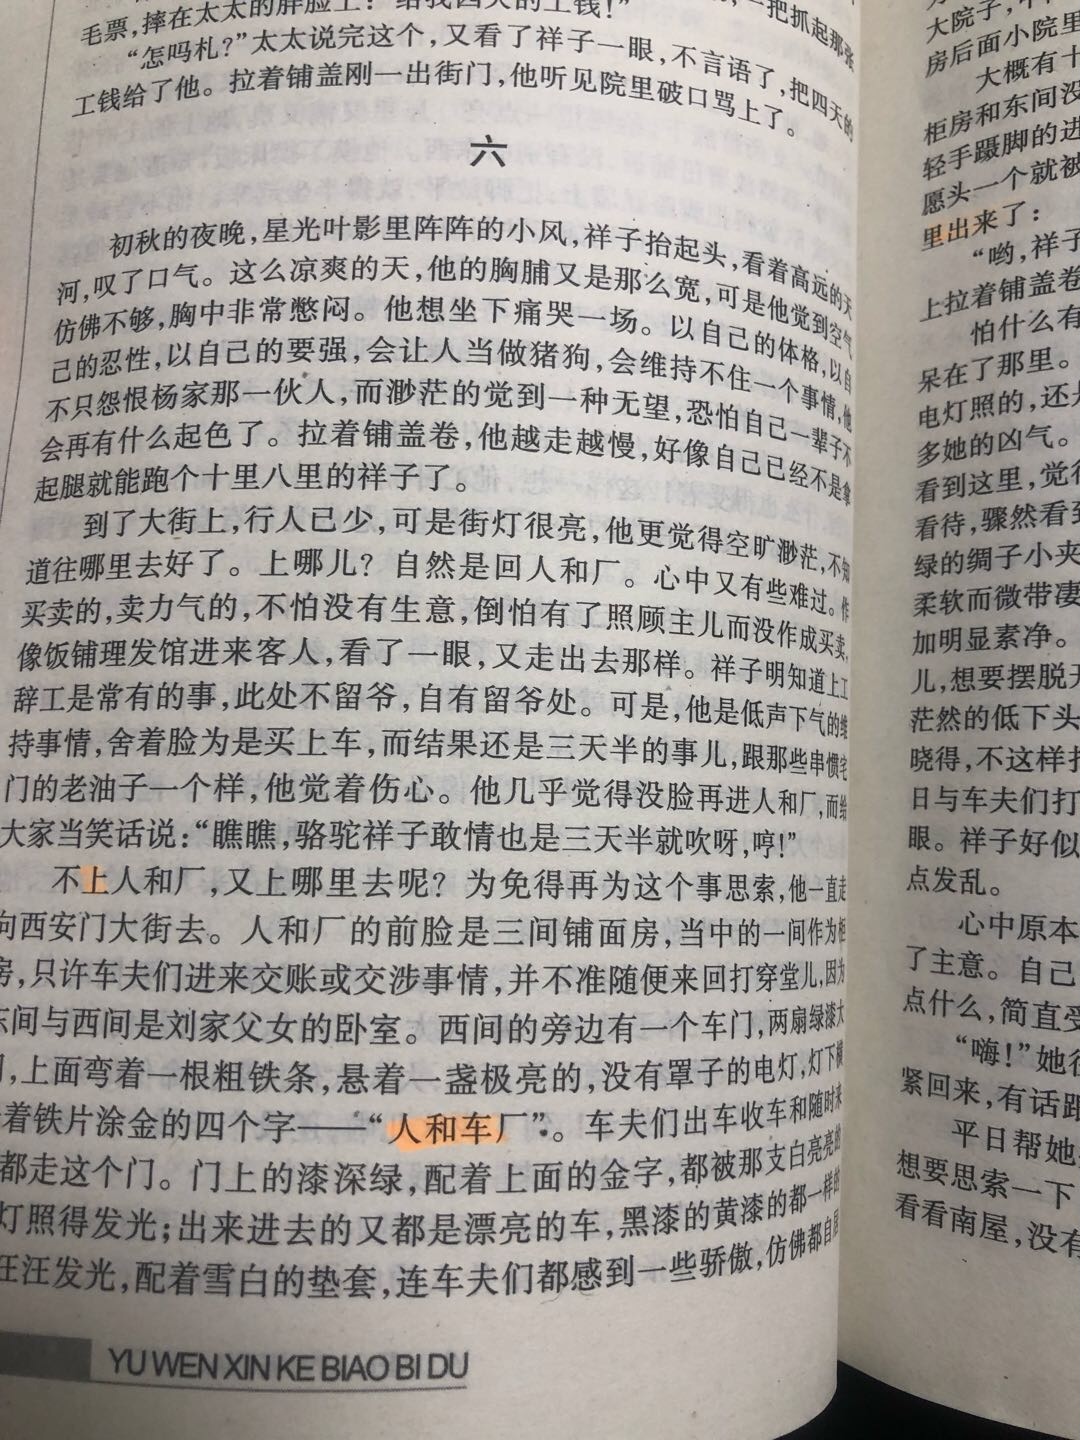 毛票，摔在太太的胖脸上：“给我四天的工钱！”
“怎吗札？”太太说完这个，又看了祥子一眼，不言语了，把四天的
工钱给了他。拉着铺盖刚一出街门，他听见院里破口骂上了。
六
初秋的夜晚，星光叶影里阵阵的小风，祥子抬起头，看着高远的天
河，叹了口气。这么凉爽的天，他的胸脯又是那么宽，可是他觉到空气
仿佛不够，胸中非常憋闷。他想坐下痛哭一场。以自己的体格，以自
己的忍性，以自己的要强，会让人当做猪狗，会维持不住一个事情，他
不只怨恨杨家那一伙人，而渺茫的觉到一种无望，恐怕自己一辈子不
会再有什么起色了。拉着铺盖卷，他越走越慢，好像自己已经不是拿
起腿就能跑个十里八里的祥子了。
到了大街上，行人已少，可是街灯很亮，他更觉得空旷渺茫，不知
道往哪里去好了。上哪儿？自然是回人和厂。心中又有些难过。作
买卖的，卖力气的，不怕没有生意，倒怕有了照顾主儿而没作成买卖，
像饭铺理发馆进来客人，看了一眼，又走出去那样。祥子明知道上工
辞工是常有的事，此处不留爷，自有留爷处。可是，他是低声下气的维
持事情，舍着脸为是买上车，而结果还是三天半的事儿，跟那些串惯宅
门的老油子一个样，他觉着伤心。他几乎觉得没脸再进人和厂，而给
大家当笑话说：“瞧瞧，骆驼祥子敢情也是三天半就吹呀，哼！”
不上人和厂，又上哪里去呢？为免得再为这个事思索，他一直走
向西安门大街去。人和厂的前脸是三间铺面房，当中的一间作为柜
房，只许车夫们进来交账或交涉事情，并不准随便来回打穿堂儿，因为
东间与西间是刘家父女的卧室。西间的旁边有一个车门，两扇绿漆大
门，上面弯着一根粗铁条，悬着一盏极亮的，没有罩子的电灯，灯下横
着铁片涂金的四个字——“人和车厂”。车夫们出车收车和随时来
都走这个门。门上的漆深绿，配着上面的金字，都被那支白亮亮的
灯照得发光；出来进去的又都是漂亮的车，黑漆的黄漆的都一样的
汪汪发光，配着雪白的垫套，连车夫们都感到一些骄傲，仿佛都自居
YU WEN XIN KE BIAO BI DU
大院子，
房后面小院里
大概有十
柜房和东间没
轻手蹑脚的进
愿头一个就被
里出来了：
“哟，祥子
上拉着铺盖卷
怕什么有
呆在了那里。
电灯照的，还是
多她的凶气。
看到这里，觉得
看待，骤然看到
绿的绸子小夹
柔软而微带凄
加明显素净。
儿，想要摆脱开
茫然的低下头
晓得，不这样打
日与车夫们打
眼。祥子好似
点发乱。
心中原本
了主意。自己
点什么，简直受
“嗨！”她往
紧回来，有话跟
平日帮她
想要思索一下
看看南屋，没有